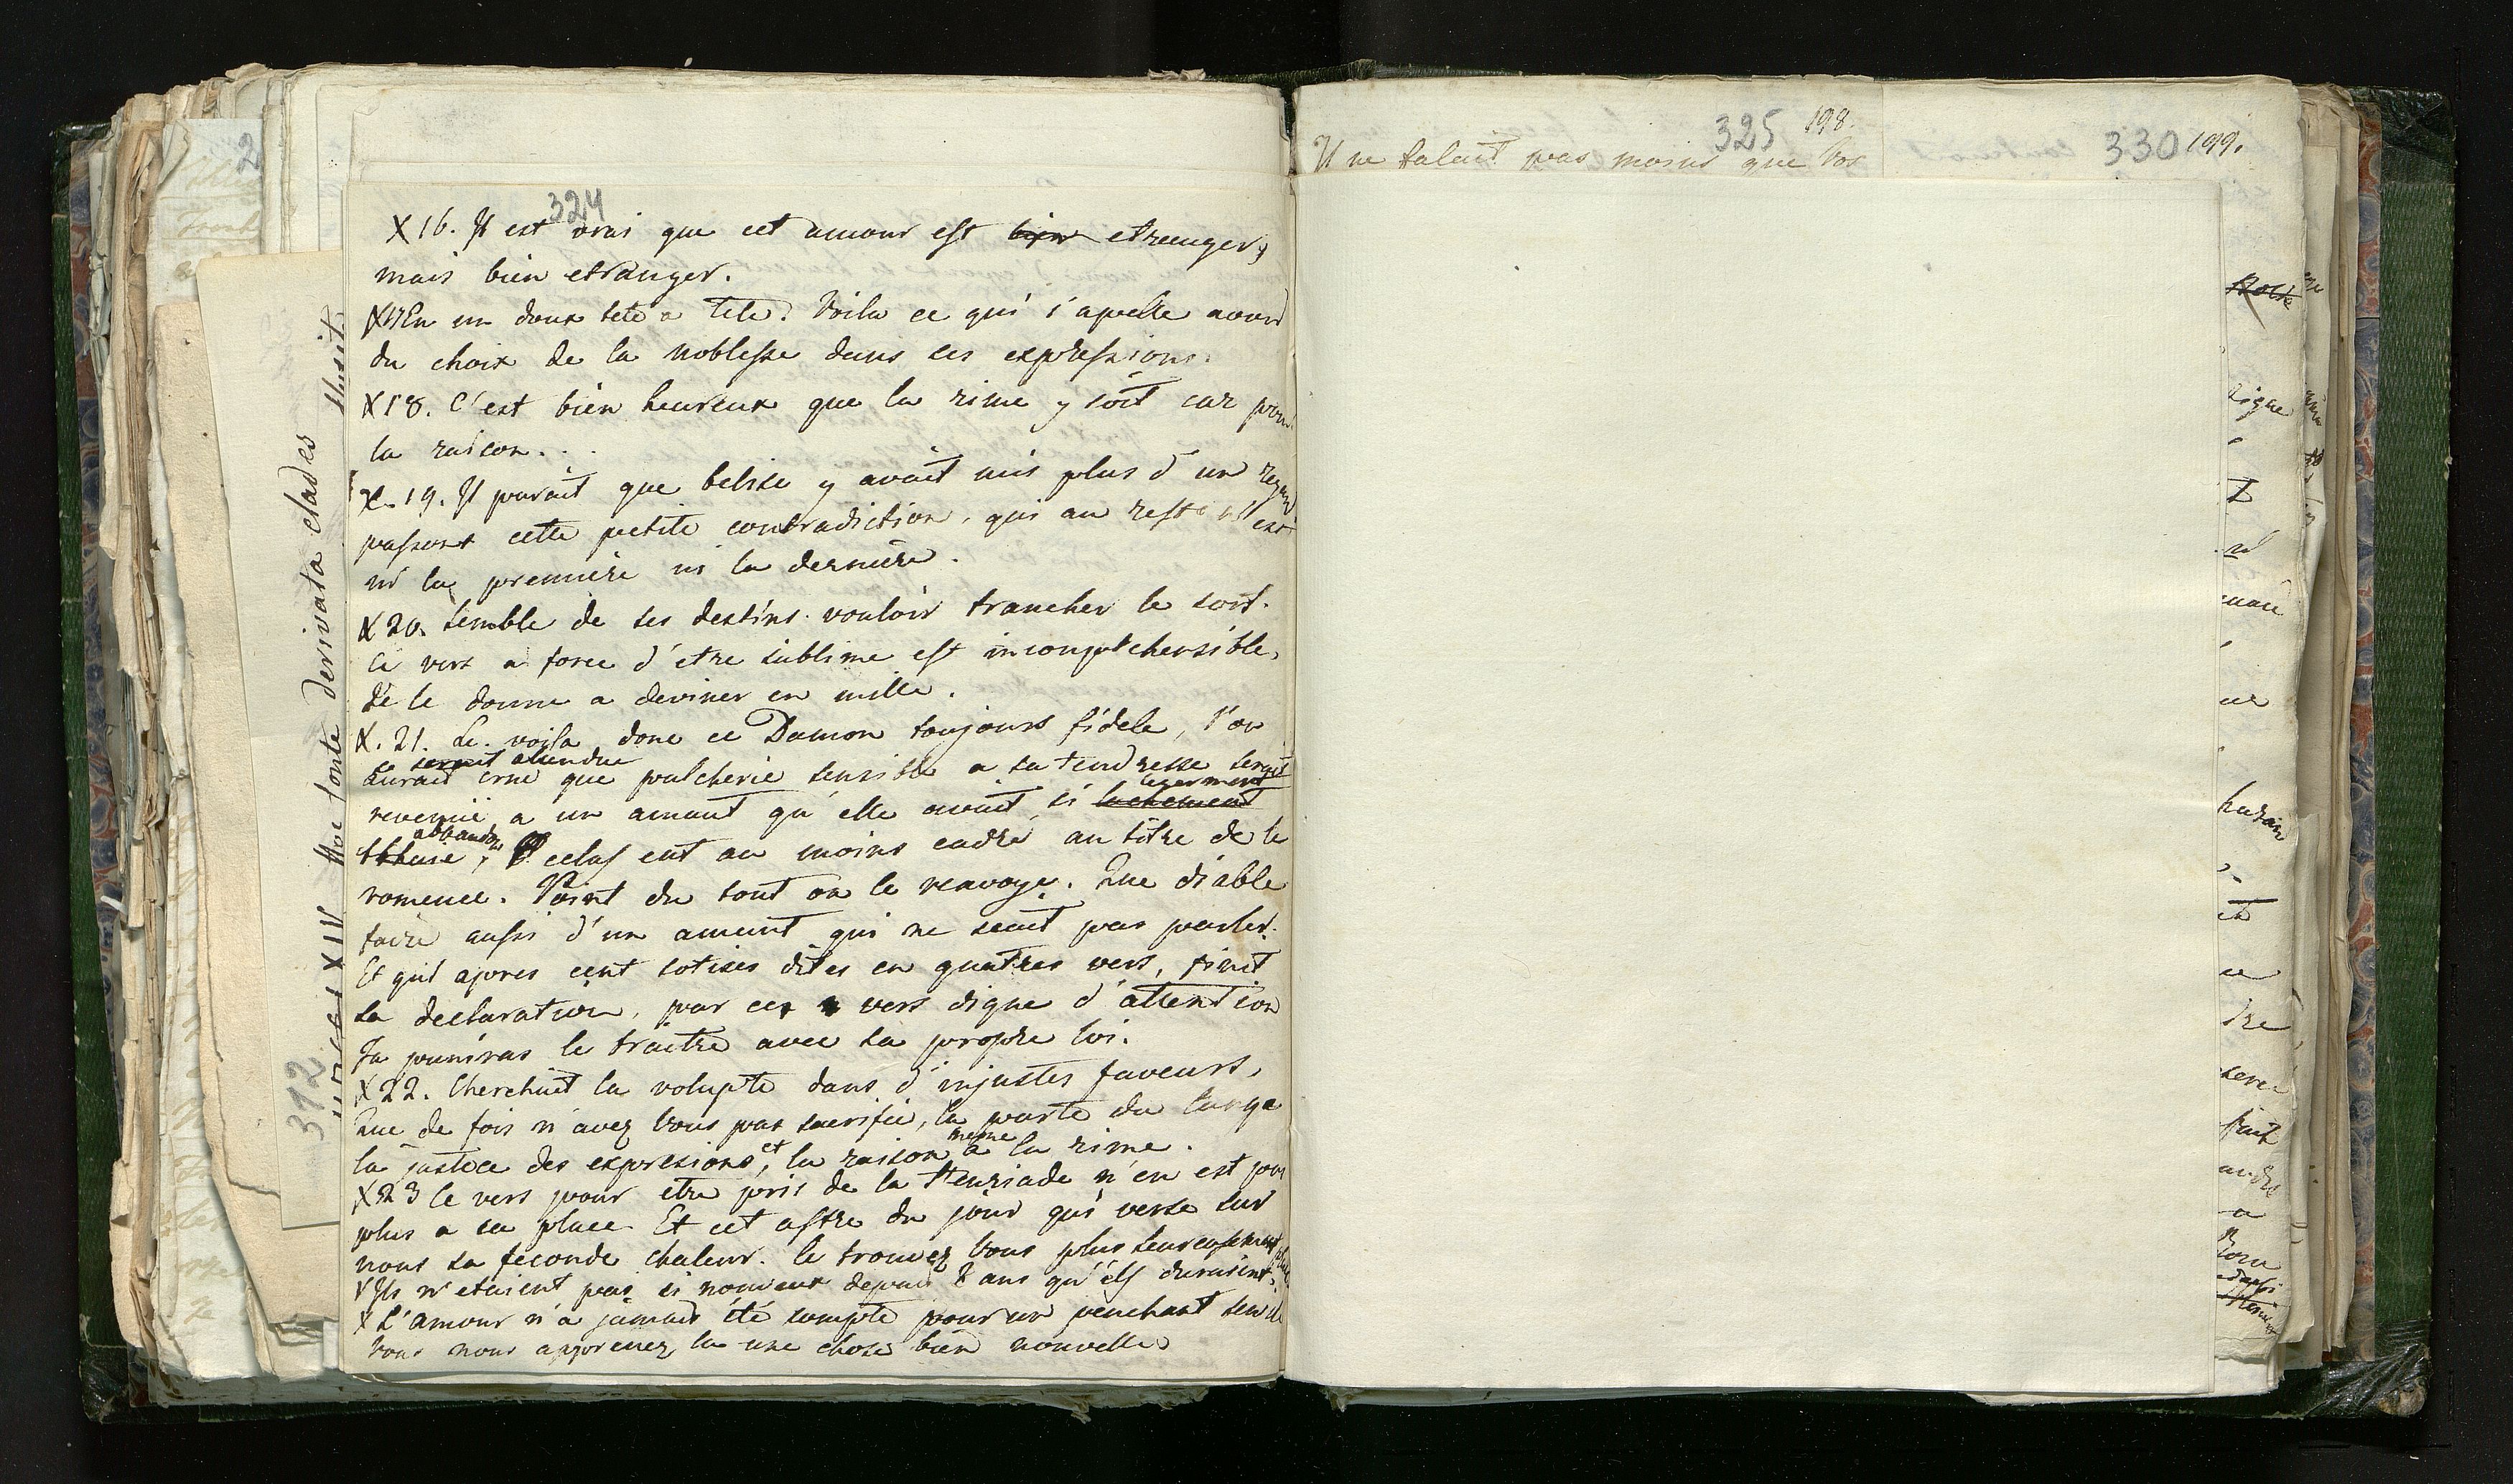 324
X 16. Il est vrai que cet amour est bien etreenger,
mais bien etranger.
X 17 En un doux tete a tete. Voila ce qui s'apelle avoir
du choix de la noblesse dans ses expressions.
X 18. C'est bien heureux que la rime y soit car pour
la raison...
X. 19. Il parait que belise y avait mis plus d'un regard
passons cette petite contradiction, qui au reste n'est
ni la premiere ni la derniere.
X 20. Semble de ses destins vouloir trancher le sort.
Ce vers a force d'etre sublime est incomprehensible,
Je le donne a deviner en mille.
X. 21. Le voila donc ce Damon toujours fidele, l'on
se serait attendue
aurait crue que pulcherie sensible a sa tendresse serait
legerment
revenüe a un amant qu'elle avait si lachement
abbandoné
cela eut au moins cadré au titre de la
romence. Point du tout on le renvoye. Que diable
faire aussi d'un ament qui ne scait pas parler.
Et qui apres cent sotises dites en quatres vers, finit
sa declaration, par ce vers digne d'attention
Tu puniras le traitre avec sa propre loi.
X 22. Cherchait la volupté dans d'injustes faveurs,
Que de fois n'avez vous pas sacrifié, la purté du langa
la justece des expresions, et la raison meme a la rime.
X 23 Ce vers pour etre pris de la Henriade n'en est pas
plus a sa place. Et cet astre du jour qui verse sur
nous sa feconde chaleur. le trouvez vous plus heureusement
X Ils n'etaient pas si nouveux depuis 8 ans qu'ils duraient.
X L'amour n'a jamais été compté pour un penchant
Vous nous apprenez la une chose bien nouvelle
325 198.
Il ne falait pas moins que vos
330 199.
372
Hoc fonte derivata clades